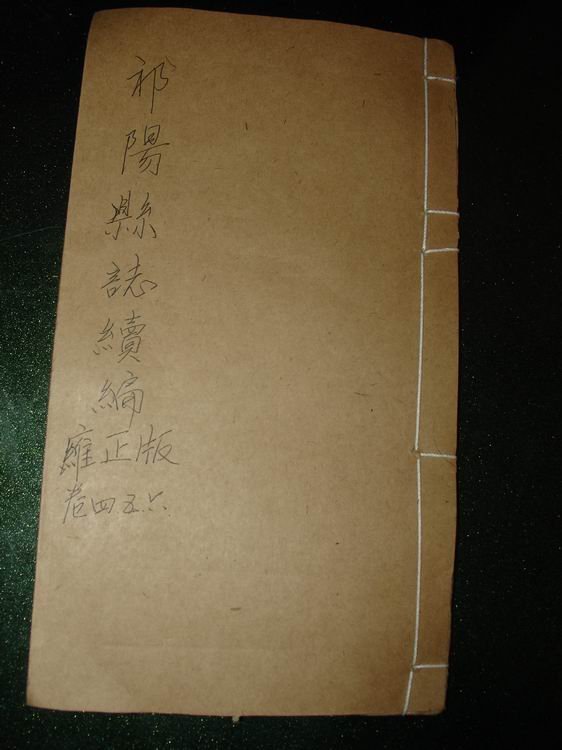 祁陽縣誌續編
雍正版
卷四.五.六